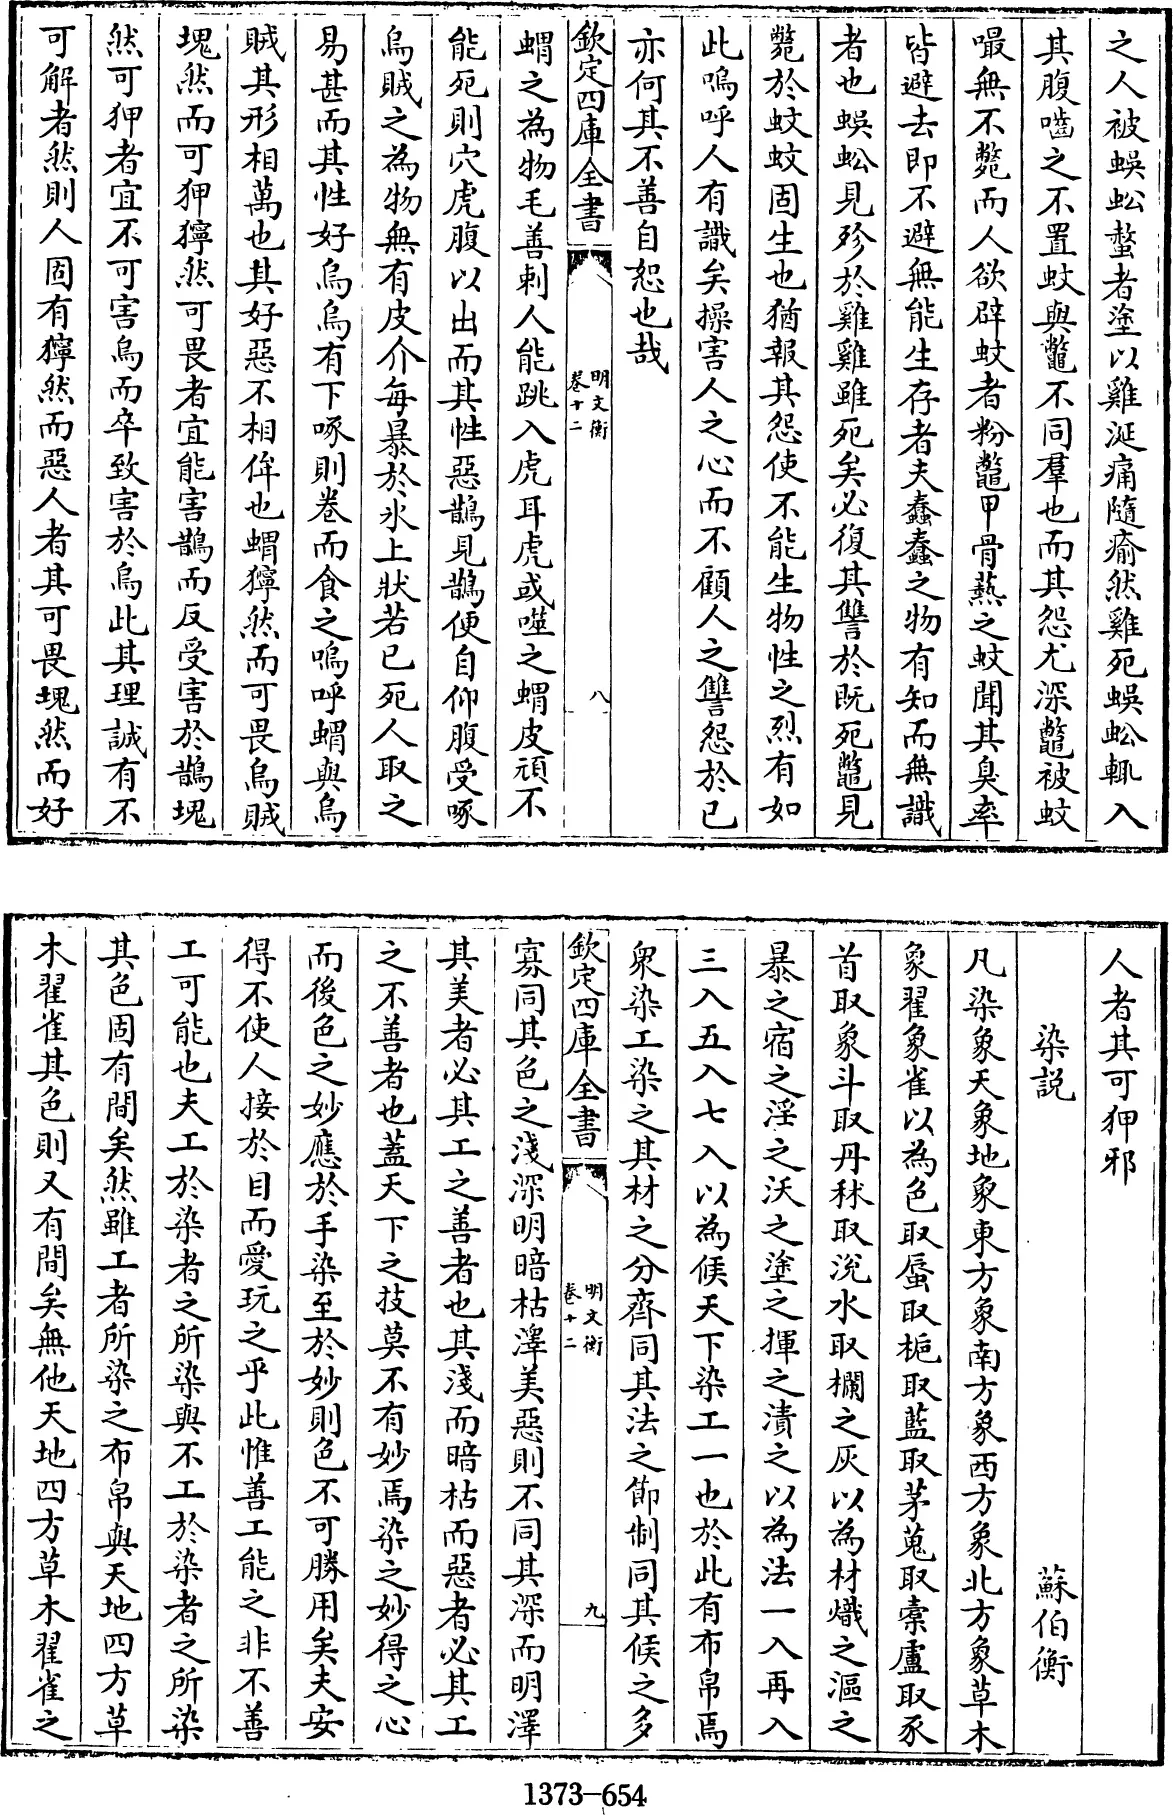 之人被蜈蚣螫者塗以雞涎痛隨瘉然雞死蜈蚣輒入
其腹嚙之不置蚊與鼈不同羣也而其怨尤深鼈被蚊
嘬無不斃而人欲辟蚊者粉鼈甲骨爇之蚊聞其臭率
皆避去即不避無能生存者夫蠢蠢之物有知而無識
者也蜈蚣見殄於雞雞雖死矣必復其讐於既死鼈見
斃於蚊蚊固生也猶報其怨使不能生物性之烈有如
此嗚呼人有識矣操害人之心而不顧人之讐怨於已
亦何其不善自恕也哉
欽定四庫全書
明文衡
卷十二
八
蝟之為物毛善刺人能跳入虎耳虎或噬之蝟皮頑不
能死則穴虎腹以出而其性惡鵲見鵲便自仰腹受啄
烏賊之為物無有皮介每暴於氷上狀若已死人取之
易甚而其性好烏烏有下啄則卷而食之嗚呼蝟與烏
賊其形相萬也其好惡不相侔也蝟獰然而可畏烏賊
塊然而可狎獰然可畏者宜能害鵲而反受害於鵲塊
然可狎者宜不可害烏而卒致害於烏此其理誠有不
可解者然則人固有獰然而惡人者其可畏塊然而好
人者其可狎邪
染説
蘇伯衡
凡染象天象地象東方象南方象西方象北方象草木
象翟象雀以為色取蜃取梔取藍取茅蒐取橐盧取豕
首取象斗取丹秫取涗水取欄之灰以為材熾之漚之
暴之宿之淫之沃之塗之揮之漬之以為法一入再入
三入五入七入以為候天下染工一也於此有布帛焉
衆染工染之其材之分齊同其法之節制同其候之多
欽定四庫全書
明文衡
卷十二
九
寡同其色之淺深明暗枯澤美惡則不同其深而明澤
其美者必其工之善者也其淺而暗枯而惡者必其工
之不善者也蓋天下之技莫不有妙焉染之妙得之心
而後色之妙應於手染至於妙則色不可勝用矣夫安
得不使人接於目而愛玩之乎此惟善工能之非不善
工可能也夫工於染者之所染與不工於染者之所染
其色固有間矣然雖工者所染之布帛與天地四方草
木翟雀其色則又有間矣無他天地四方草木翟雀之
1373-654